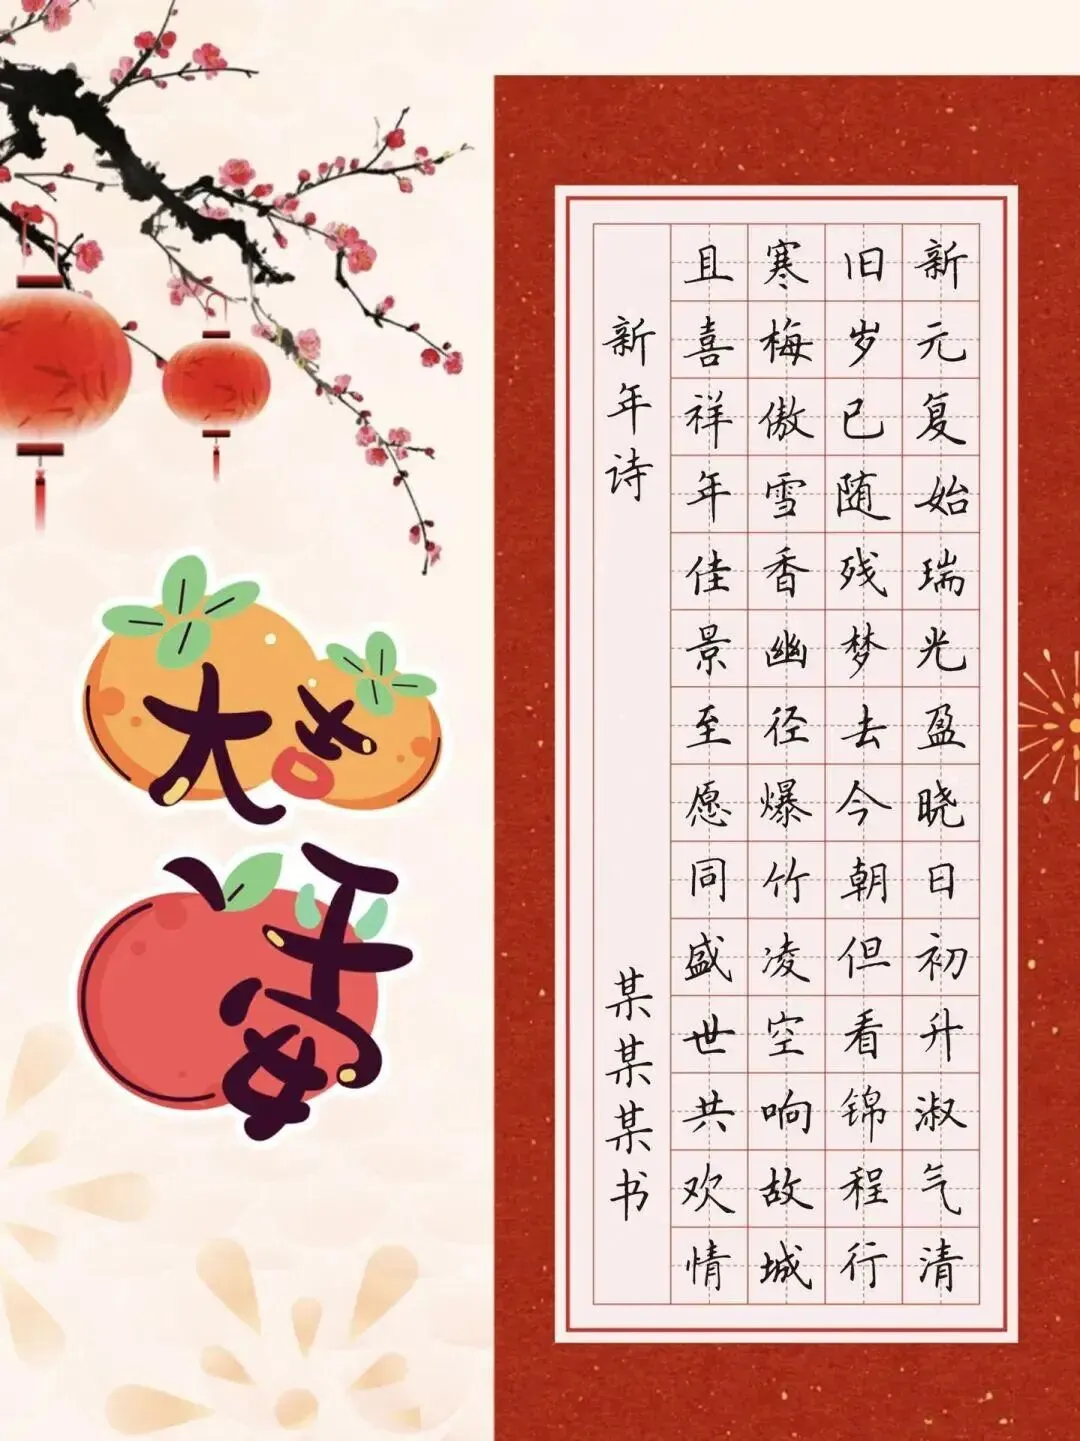 新元复始瑞光盈晓日初升淑气清
旧岁已随残梦去今朝但看锦程行
寒梅傲雪香幽径爆竹凌空响故城
且喜祥年佳景至愿同盛世共欢情
新年诗
某某某书
大吉
平安